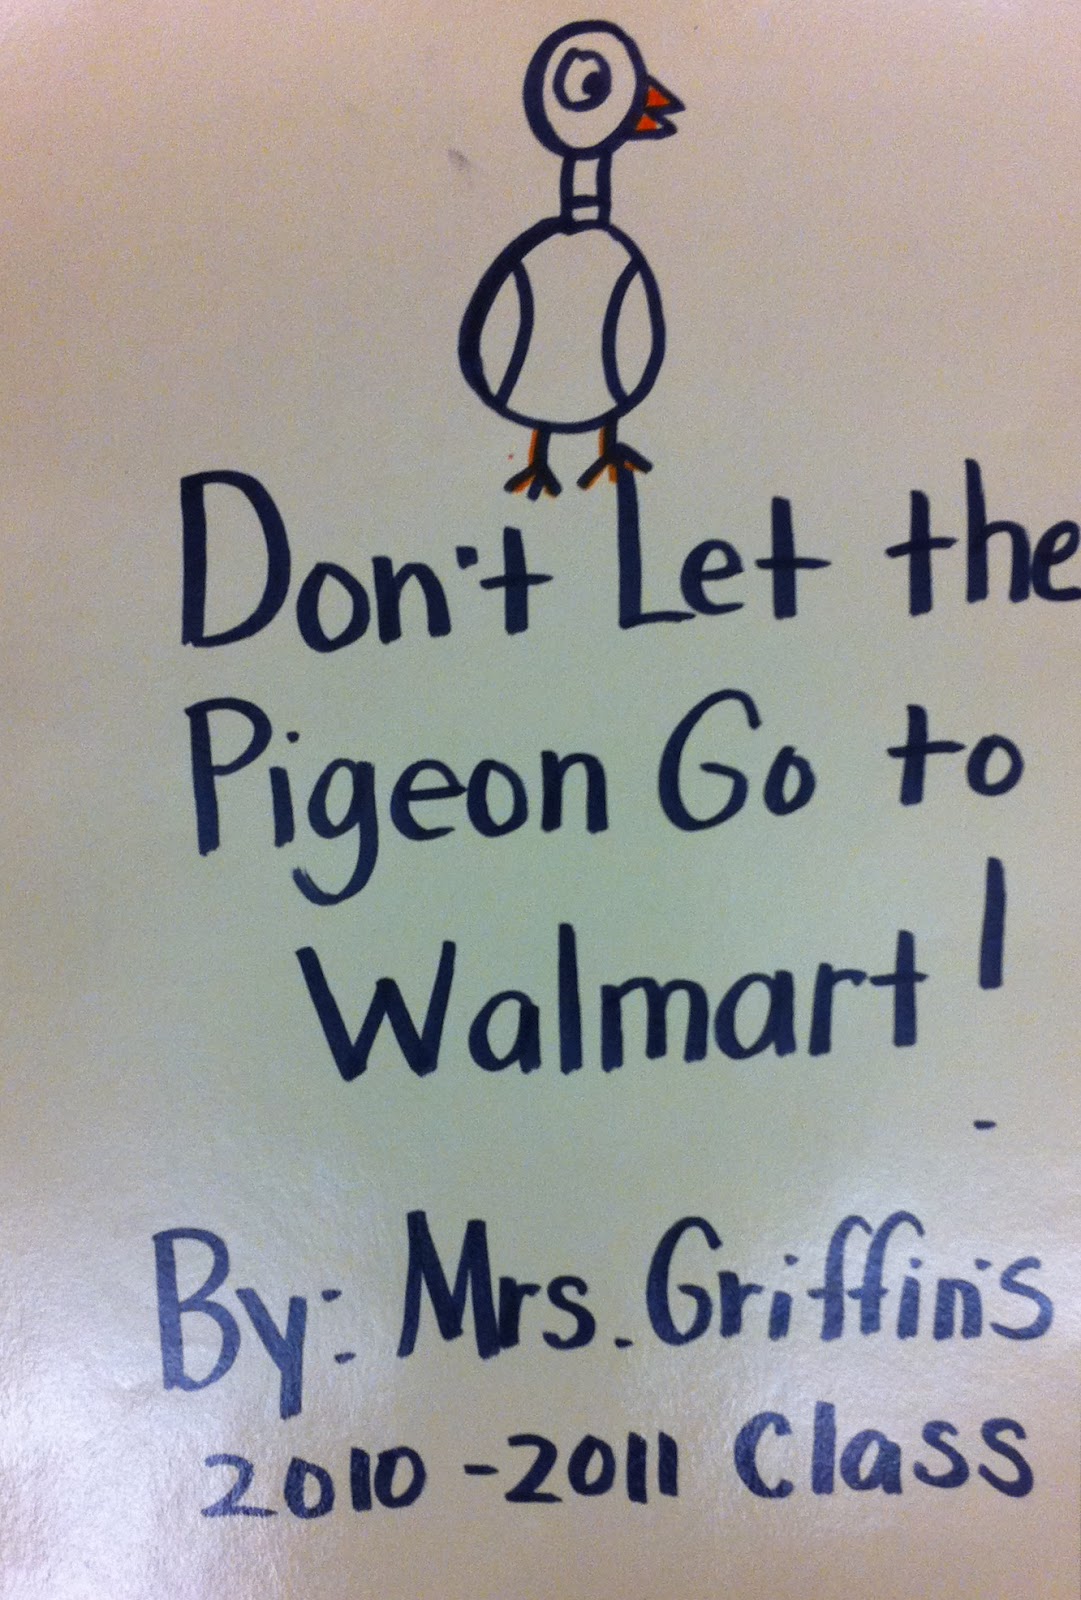 Don't Let the
Pigeon Go to
Walmart!
By: Mrs. Griffin's
2010-2011 Class